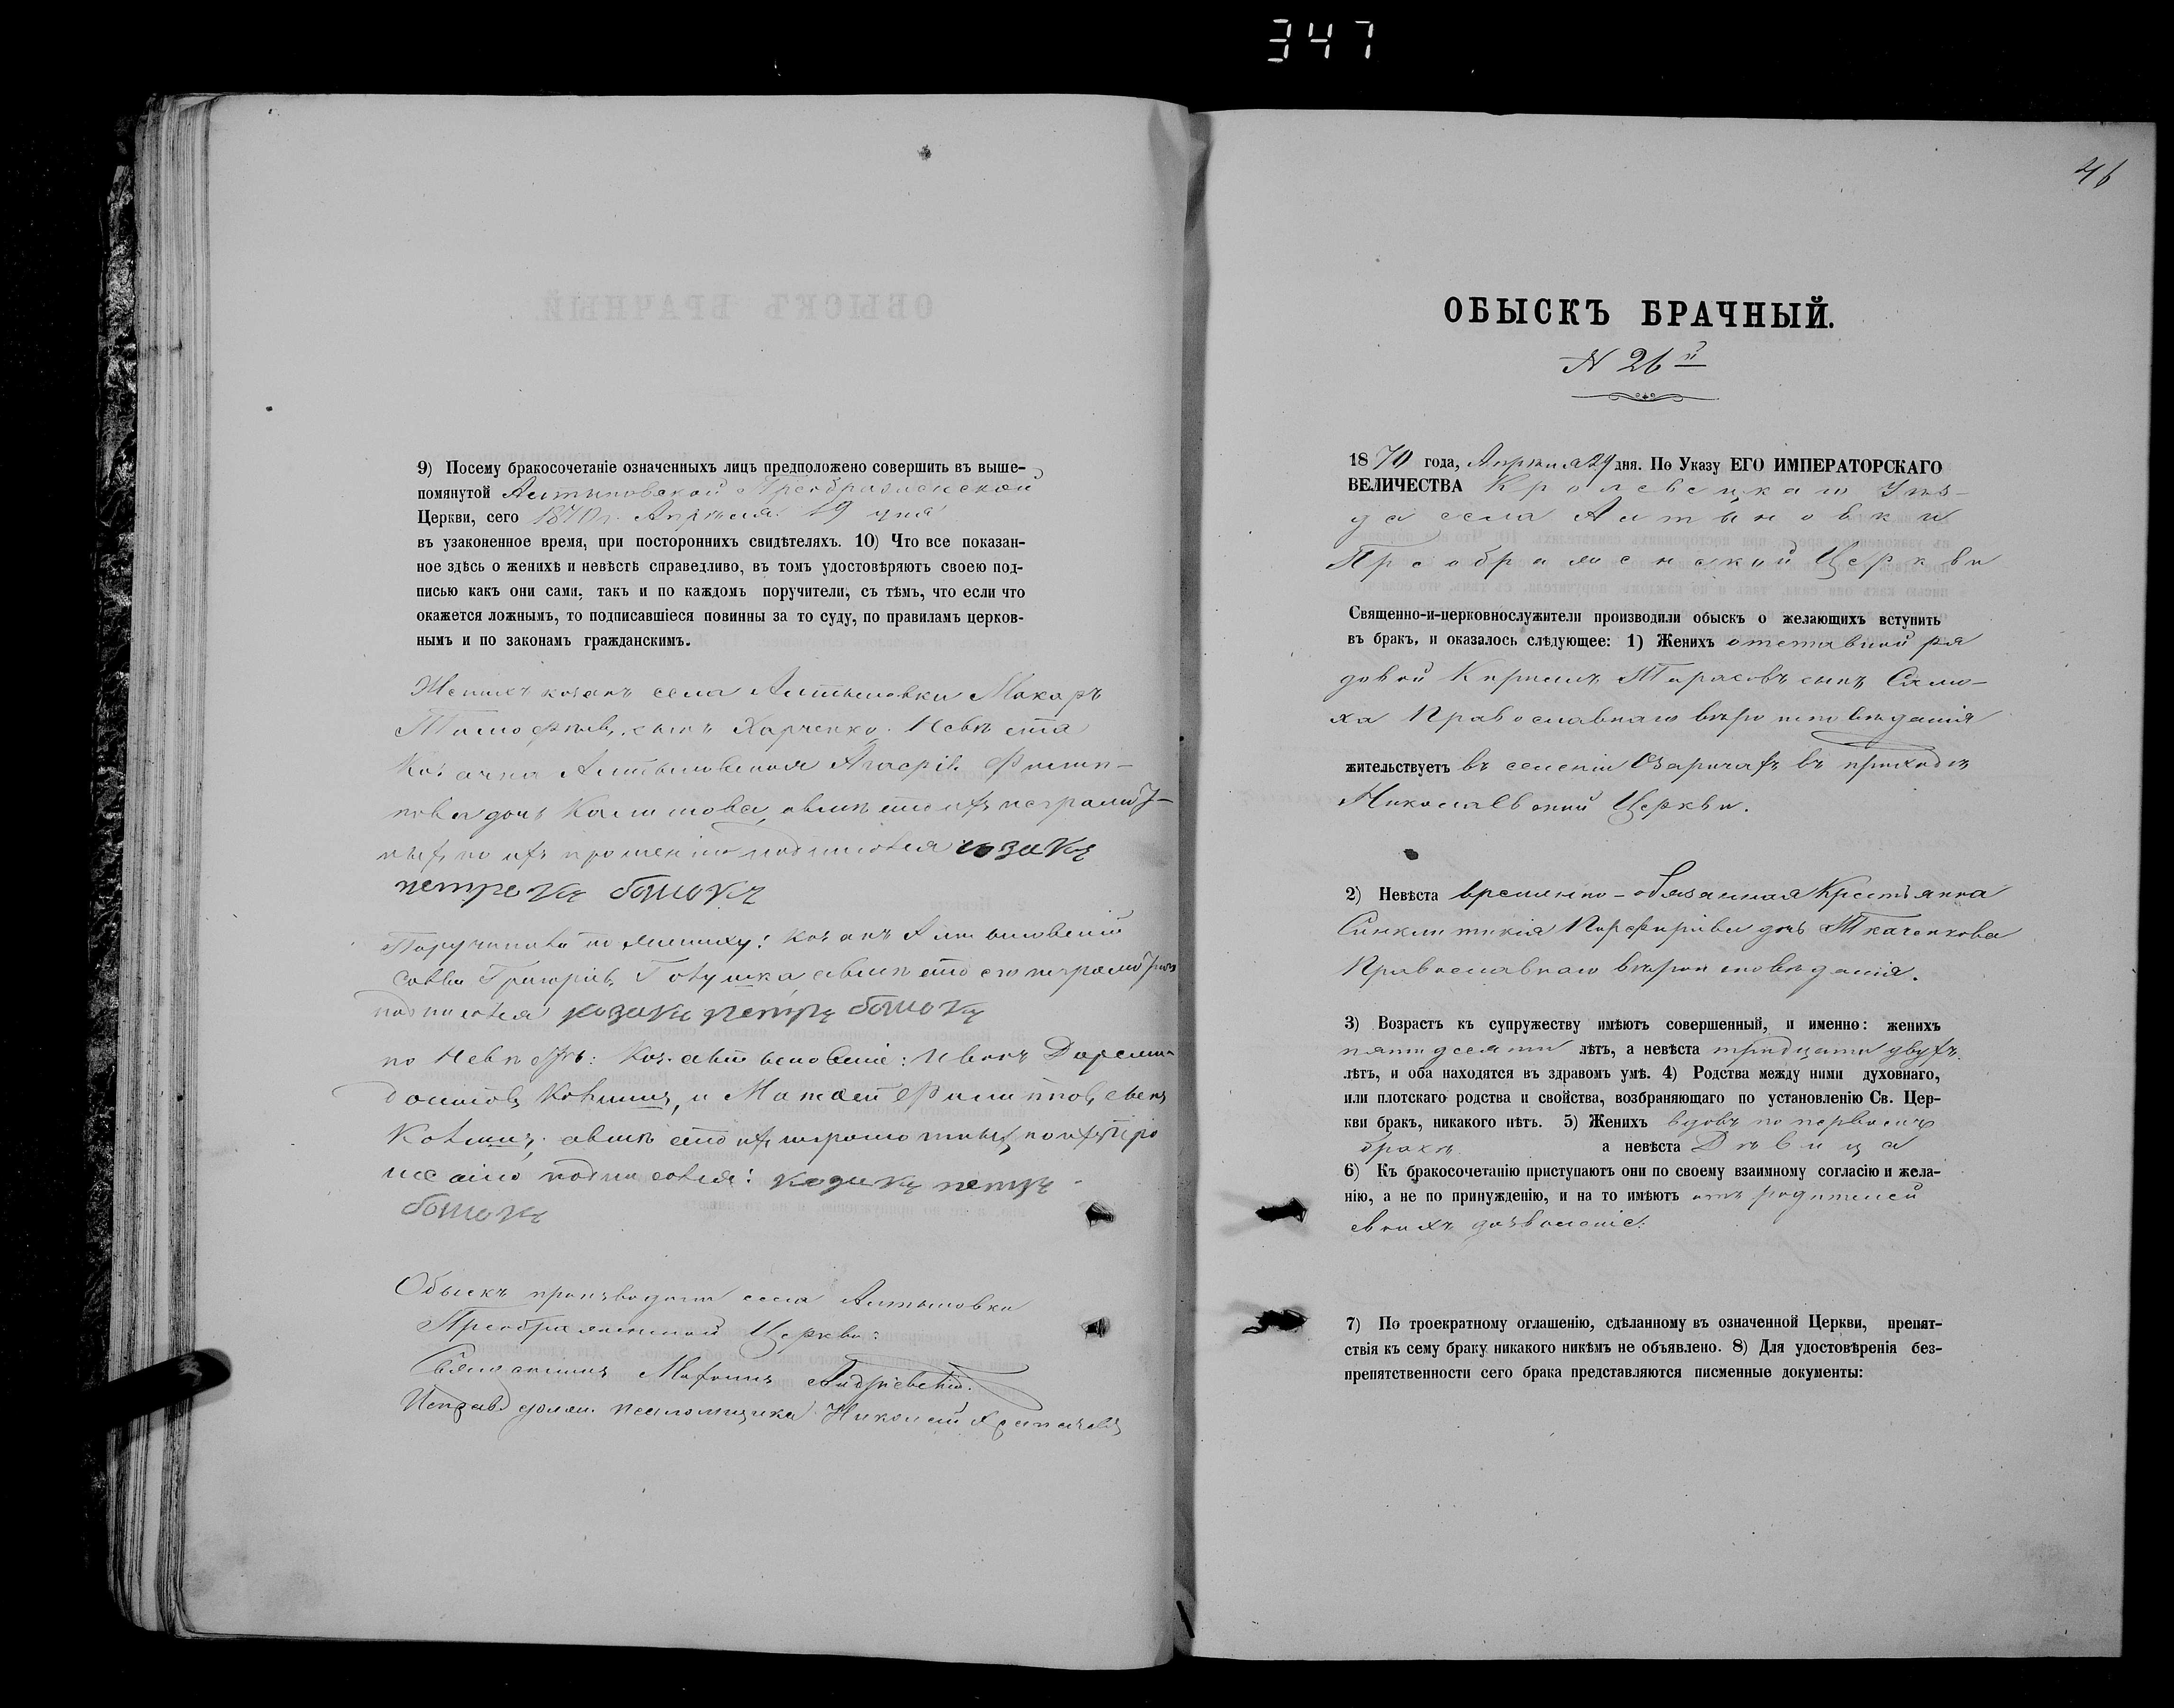 347
9) Посему бракосочетаніе означенныхъ лицъ предположено совершить въ выше-
помянутой Алтыновской Преображенской
Церкви, сего 1870 г. Апрѣля 29 дня
въ узаконенное время, при постороннихъ свидѣтеляхъ. 10) Что все показан-
ное здѣсь о женихѣ и невѣстѣ справедливо, въ томъ удостовѣряютъ своею под-
писью какъ они сами, такъ и по каждомъ поручители, съ тѣмъ, что если что
окажется ложнымъ, то подписавшіеся повинны за то суду, по правиламъ церков-
нымъ и по законамъ гражданскимъ.
Женихъ козакъ села Алтыновки Макаръ
сынъ Харченко. Невѣста
Козачка Алтыновская Филип-
пова дочь а вмѣсто ихъ неграмот-
ныхъ по ихъ прошенію подписался козакъ
петро бошокъ
Поручители по женихѣ: козакъ Алтыновскій
Савва а вмѣсто его неграмотнаго
подписался козакъ петръ бошокъ
по Невѣстѣ: Коз. алтыновскіе: Иванъ
и Филиповъ сынъ
а вмѣсто ихъ неграмотныхъ по ихъ про
шенію подписался: козакъ петръ
бошокъ
Обыскъ производили села Алтыновки
Преображенской Церкви:
Священникъ Андріевскій.
Исправ. долж. псаломщика Николай
46
ОБЫСКЪ БРАЧНЫЙ.
N 26й
1870 года, Апрѣля 29 дня. По Указу ЕГО ИМПЕРАТОРСКАГО
ВЕЛИЧЕСТВА Кролевецкаго Уѣз-
да села Алтыновки
Преображенской Церкви
Священно-и-церковнослужители производили обыскъ о желающихъ вступить
въ бракъ, и оказалось слѣдующее: 1) Женихъ отставной ря
довой Кирилъ Тарасовъ сынъ
Православнаго вѣроисповѣданія
жительствуетъ въ селеніи Озаричахъ въ приходѣ
Николаевской Церкви.
2) Невѣста временно-обязанная Крестьянка
Синклитикія Порфиріева дочь Ткаченкова
Православнаго вѣроисповѣданія.
3) Возрастъ къ супружеству имѣютъ совершенный, и именно: женихъ
пятидесяти лѣтъ, а невѣста тридцати двухъ
лѣтъ, и оба находятся въ здравомъ умѣ. 4) Родства между ними духовнаго,
или плотскаго родства и свойства, возбраняющаго по установленію Св. Цер-
кви бракъ, никакого нѣтъ. 5) Женихъ вдовъ по первомъ
бракѣ а невѣста Дѣвица
6) Къ бракосочетанію приступаютъ они по своему взаимному согласію и жела-
нію, а не по принужденію, и на то имѣютъ отъ родителей
своихъ дозволеніе.
7) По троекратному оглашенію, сдѣланному въ означенной Церкви, препят-
ствія къ сему браку никакого никѣмъ не объявлено. 8) Для удостовѣренія без-
препятственности сего брака представляются писменные документы: